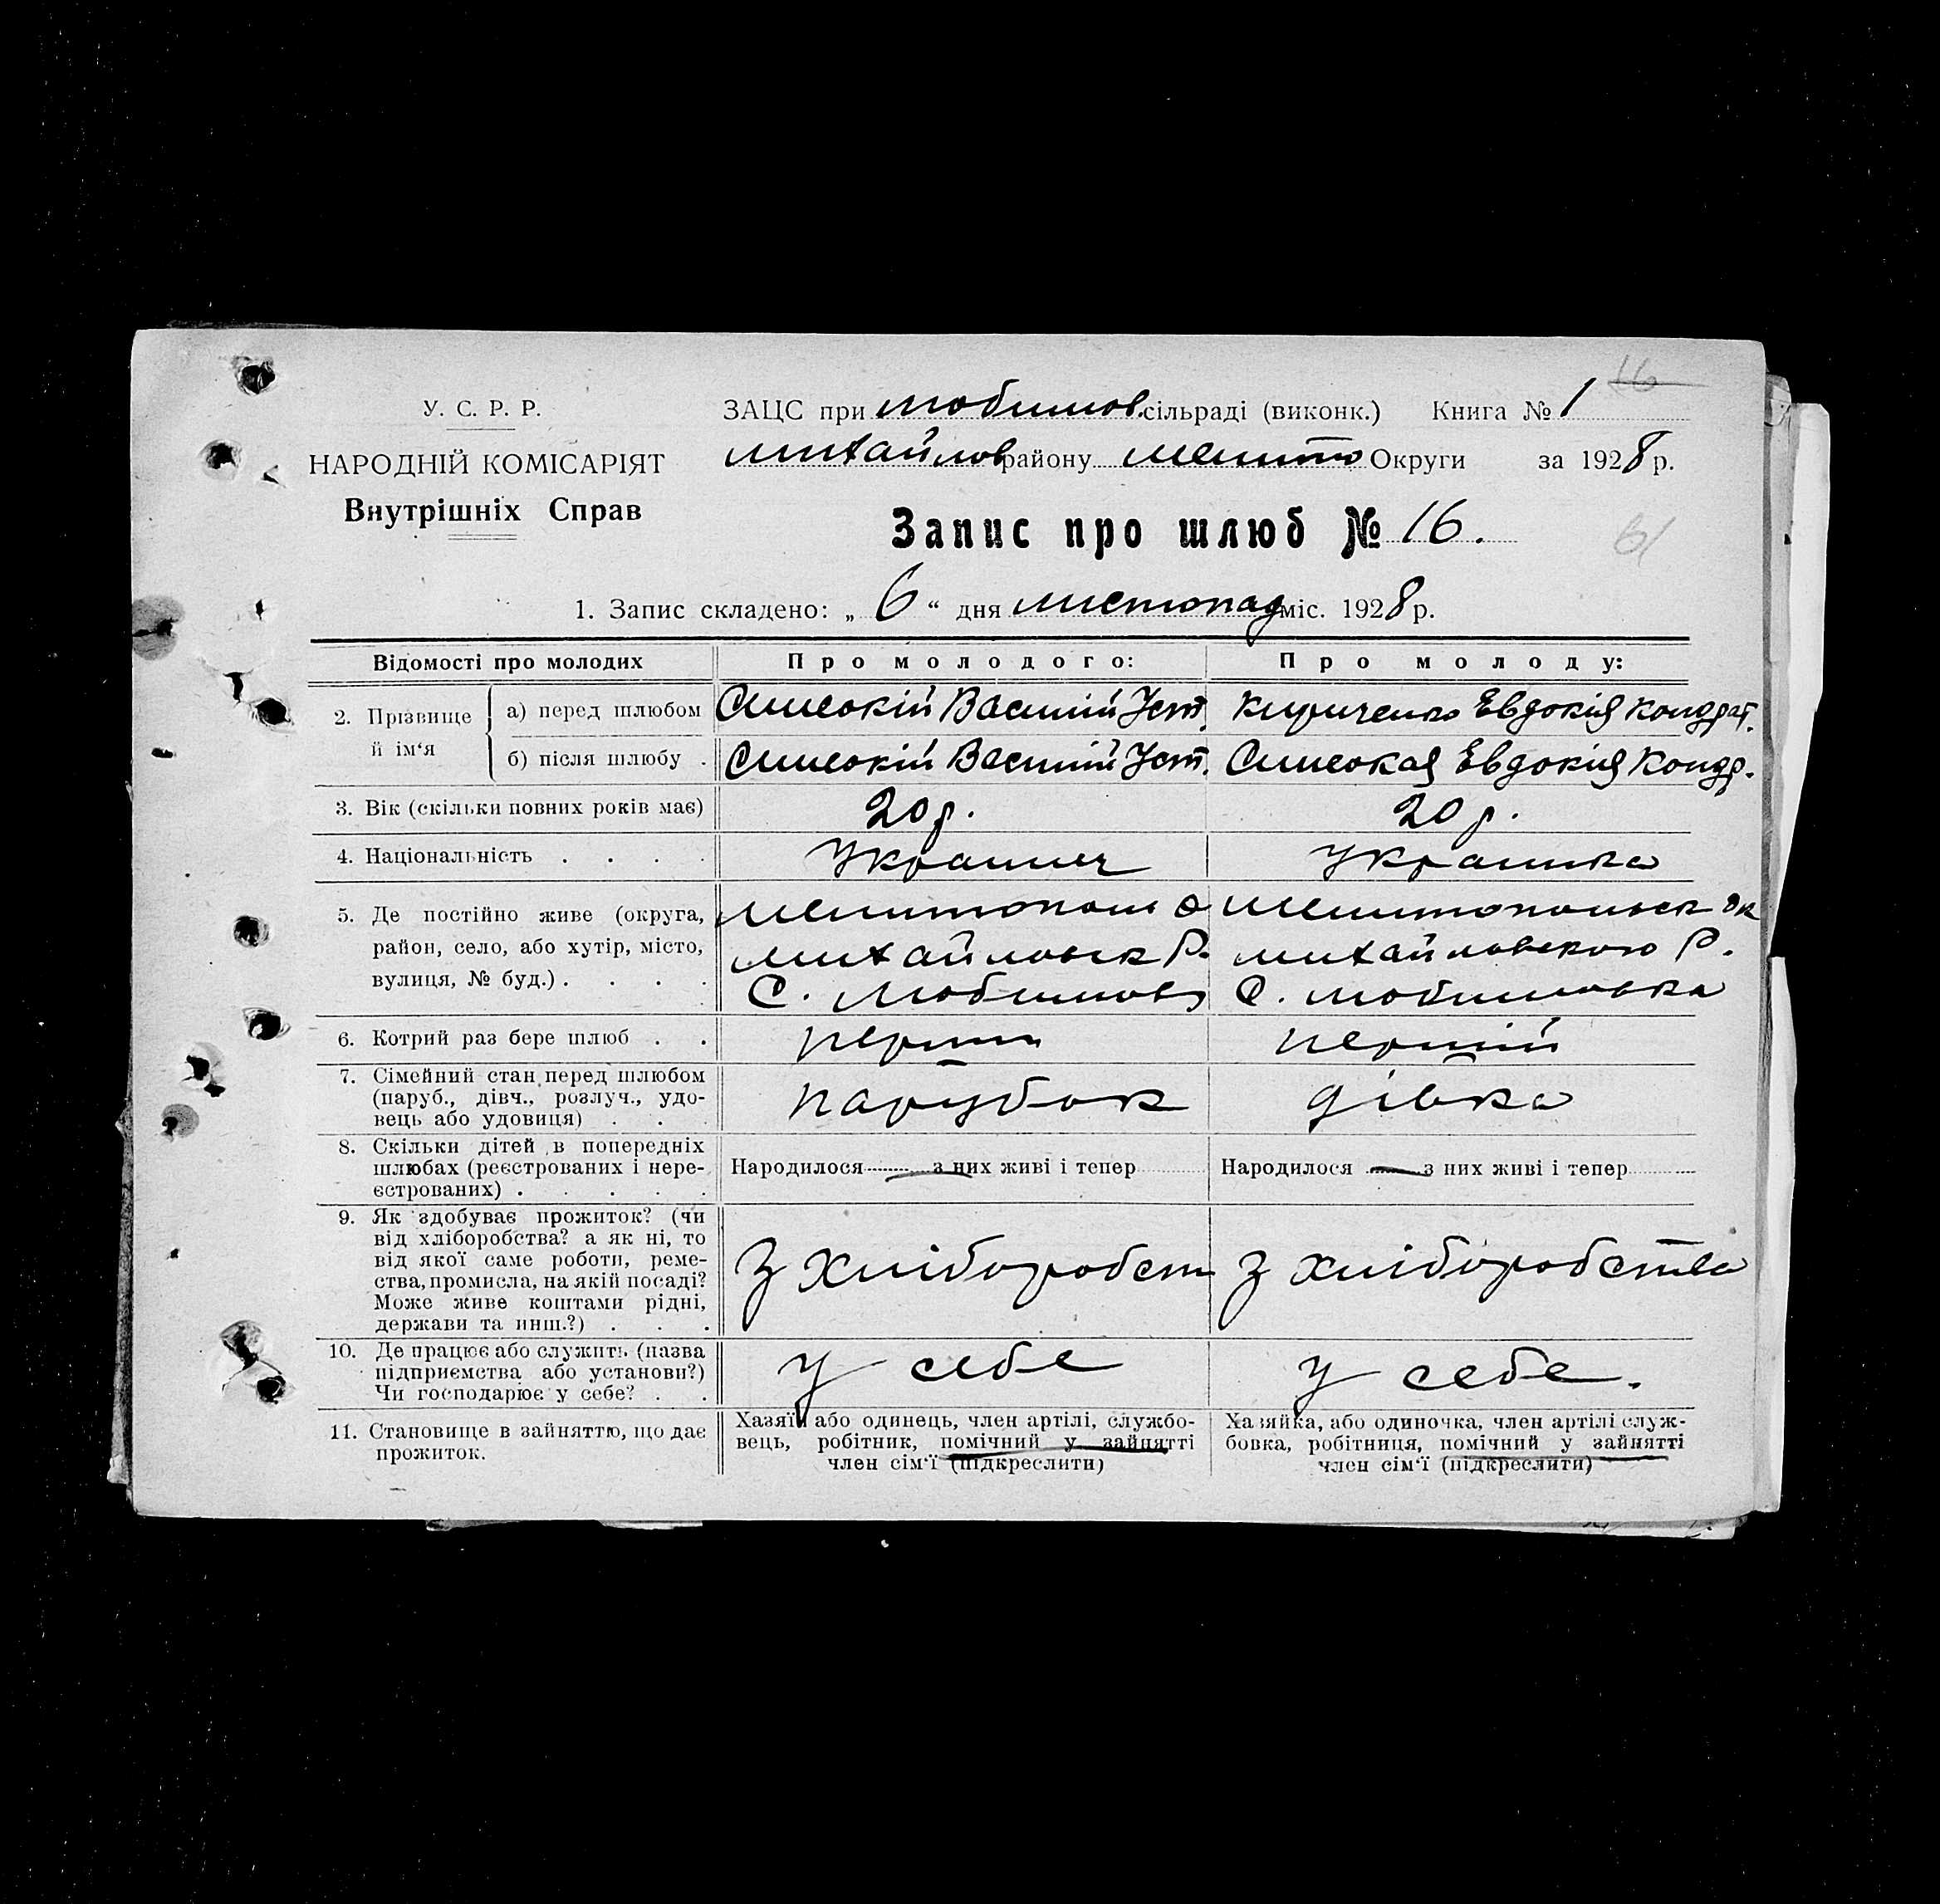 16
У. С. Р. Р.
НАРОДНІЙ КОМІСАРІЯТ
Внутрішніх Справ
ЗАЦС при Любимов. сільраді (виконк.) Книга № 1
михайлов району мелито Округи за 1928 р.
Запис про шлюб № 16.
61
1. Запис складено: „ 6 “ дня листопад міс. 1928 р.
Відомості про молодих
Про молодого:
Про молоду:
2. Прізвище й ім‘я
а) перед шлюбом
Василій Уст.
Кириченко Евдокія Кондрат.
б) після шлюбу .
Василій Уст.
Евдокія Кондр.
3. Вік (скільки повних років має)
20 р.
20 р.
4. Національність . . . .
Украинец
Украинка
5. Де постійно живе (округа,
район, село, або хутір, місто,
вулиця, № буд.) . . . .
Мелитопол О
михайловск Р.
С. Любимов
мелитопольск Ок
михайловского Р.
С. Любимовка
6. Котрий раз бере шлюб . .
перший
7. Сімейний стан перед шлюбом
(паруб., дівч., розлуч., удо-
вець або удовиця) . . .
парубок
дівка
8. Скільки дітей в попередніх
шлюбах (реєстрованих і нере-
єстрованих) . . . . .
Народилося — з них живі і тепер
Народилося — з них живі і тепер
9. Як здобуває прожиток? (чи
від хліборобства? а як ні, то
від якої саме роботи, реме-
ства, промисла, на якій посаді?
Може живе коштами рідні,
держави та инш.?) . . .
З Хліборобст
З хліборобства
10. Де працює або служить (назва
підприємства або установи?)
Чи господарює у себе? . .
У себе
У себе.
11. Становище в зайняттю, що дає
прожиток.
Хазяїн або одинець, член артілі, службо-
вець, робітник, помічний у зайнятті
член сім‘ї (підкреслити)
Хазяйка, або одиночка, член артілі служ-
бовка, робітниця, помічний у зайнятті
член сім‘ї (підкреслити)